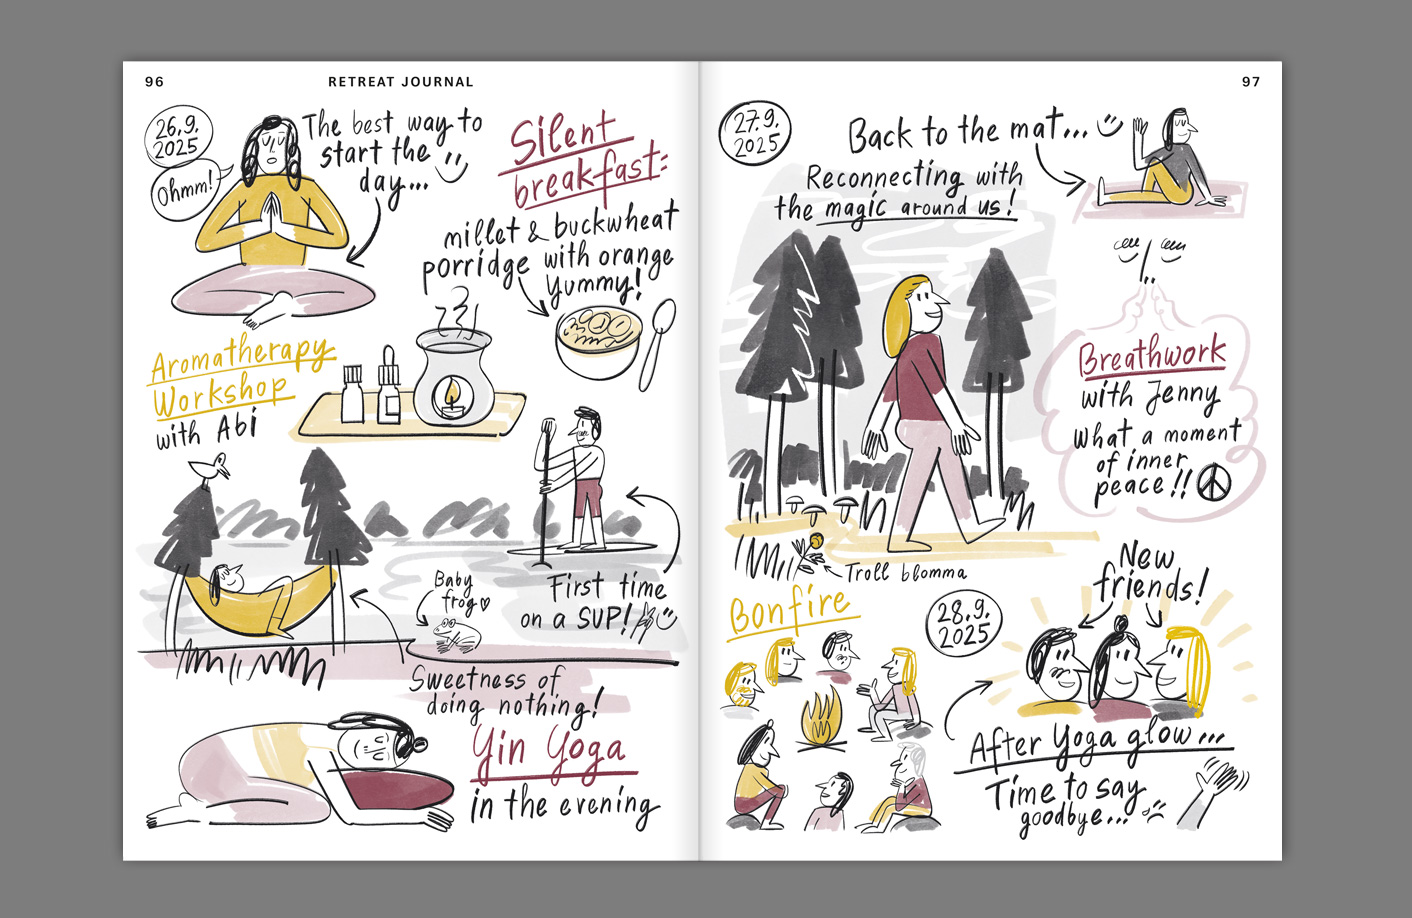 96
RETREAT JOURNAL
26.9.
2025
Ohmm!
The best way to
start the
day...
Silent
breakfast:
millet & buckwheat
porridge with orange
Yummy!
Aromatherapy
Workshop
with Abi
First time
on a SUP!
Baby
frog
Sweetness of
doing nothing!
Yin Yoga
in the evening
97
27.9.
2025
Back to the mat...
Reconnecting with
the magic around us!
Breathwork
with Jenny
What a moment
of inner
peace!!
Troll blomma
Bonfire
28.9.
2025
New
friends!
After Yoga glow...
Time to say
goodbye...